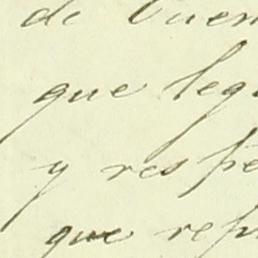 de Buen
que leg
y respe
que rep